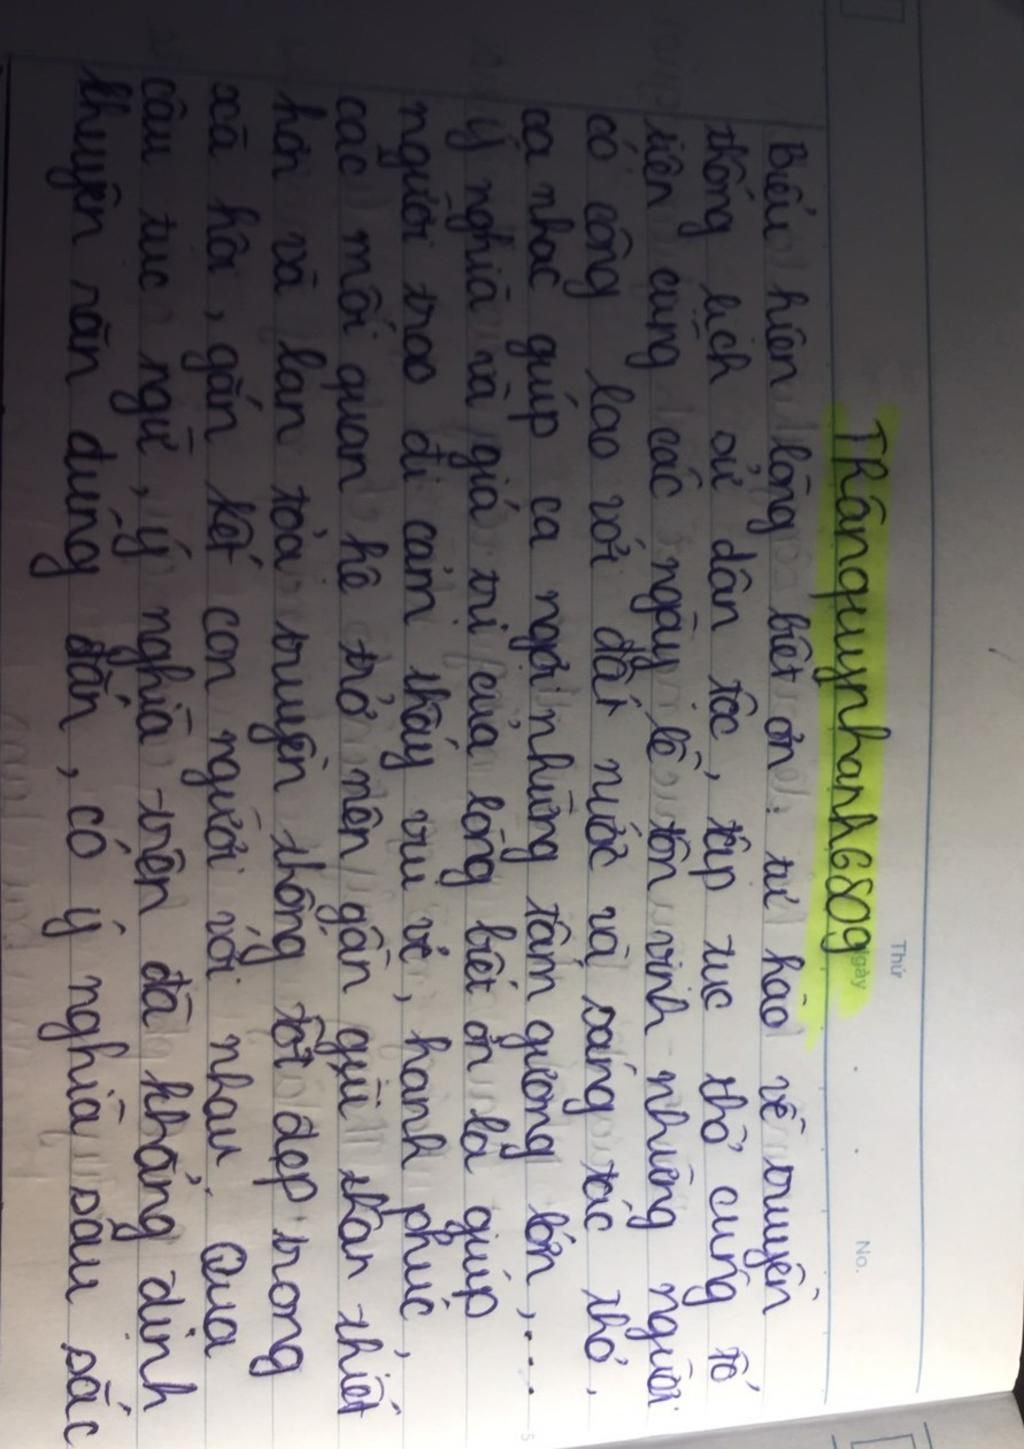 Thứ
Ngày
No.
TRânquynhanh6809
Biểu hiện lòng biết ơn: tự hào về truyền
thống lịch sử dân tộc, tiếp tục thờ cúng tổ
tiên cùng các ngày lễ tôn vinh những người
có công lao với đất nước và sáng tác thơ,
ca nhạc giúp ca ngợi những tấm gương lớn,...
ý nghĩa và giá trị của lòng biết ơn là giúp
người trao đi cảm thấy vui vẻ, hạnh phúc,
các mối quan hệ trở nên gần gũi thân thiết
hơn và lan tỏa truyền thống tốt đẹp trong
xã hội, gắn kết con người với nhau. Qua
câu tục ngữ, ý nghĩa trên đã khẳng định
khuyên răn đúng đắn, có ý nghĩa sâu sắc